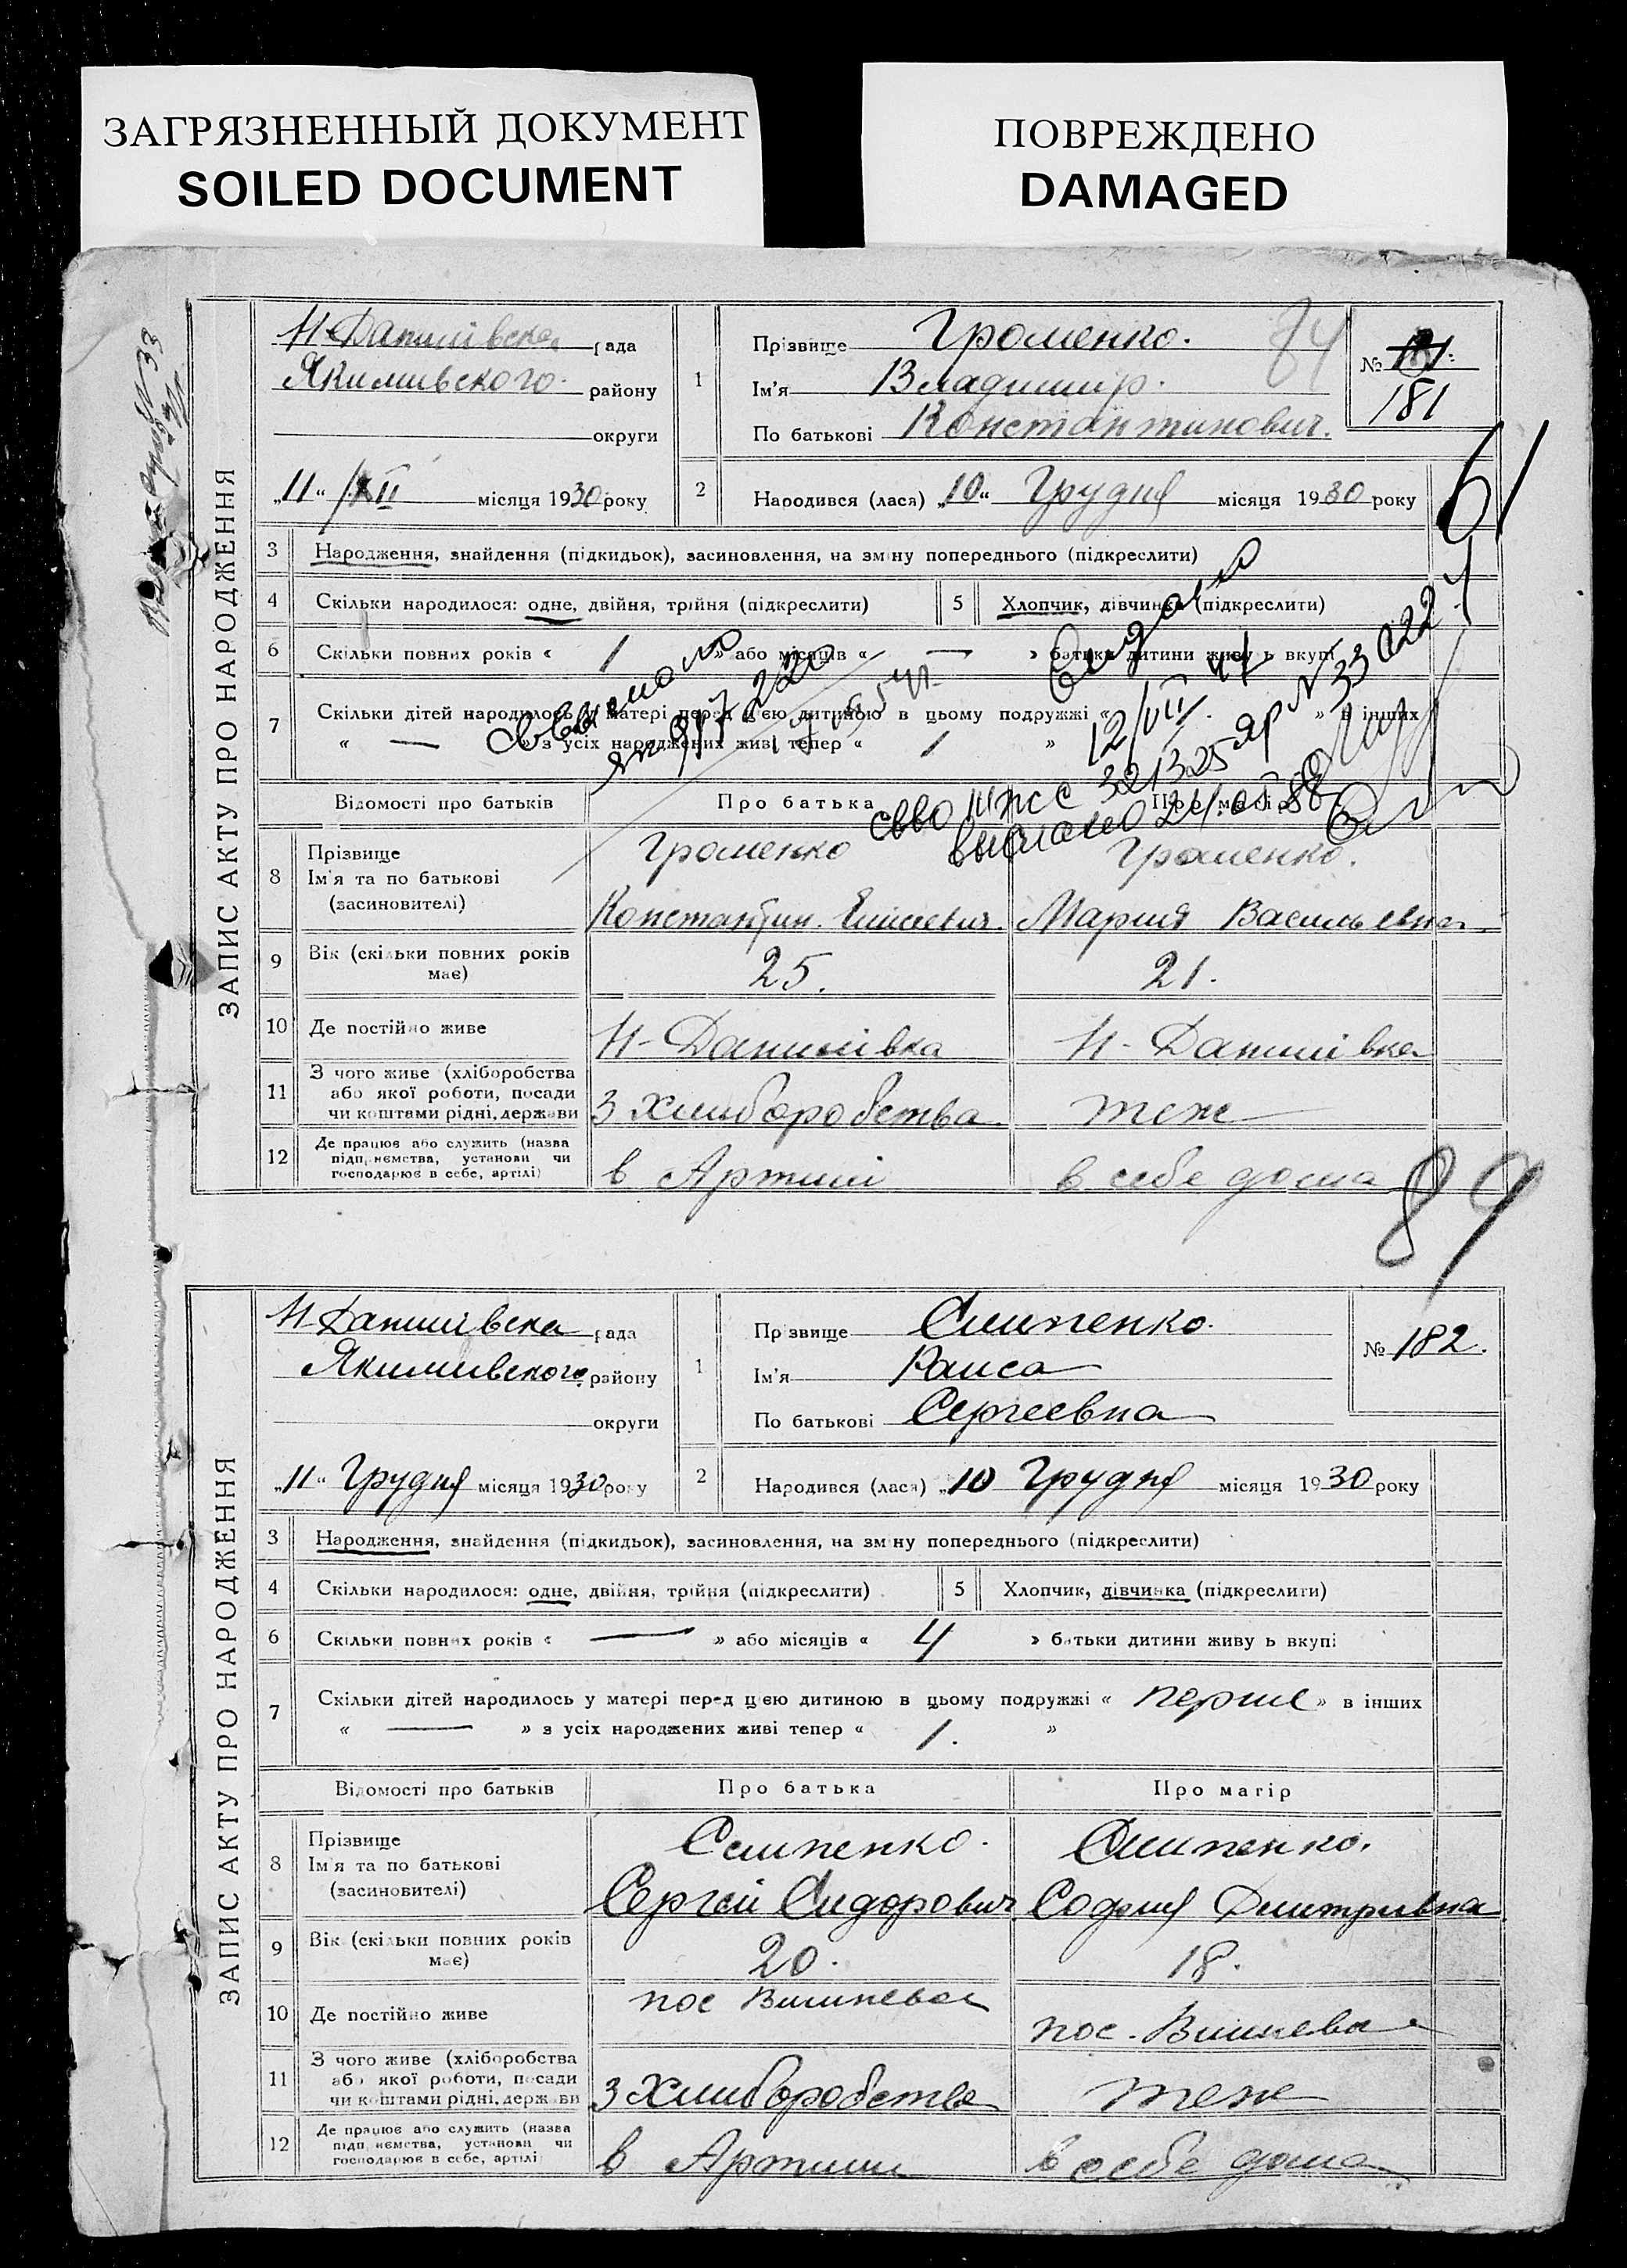 ЗАГРЯЗНЕННЫЙ ДОКУМЕНТ
SOILED DOCUMENT
ПОВРЕЖДЕНО
DAMAGED
ЗАПИС АКТУ ПРО НАРОДЖЕННЯ
Н-Данилівска рада
Якимивського району
округи
„11“ XII місяця 1930 року
1 Прізвище Громенко.
Ім'я Владимир.
По батькові Константинович.
84
№ 181
61
2 Народився (лася) „10“ Грудня місяця 1930 року
3 Народження, знайдення (підкидьок), засиновлення, на зміну попереднього (підкреслити)
4 Скільки народилося: одне, двійня, трійня (підкреслити)
5 Хлопчик, дівчинка (підкреслити)
6 Скільки повних років « 1 » або місяців « — » батьки дитини живуть вкупі
7 Скільки дітей народилось у матері перед цією дитиною в цьому подружжі « » в інших
« — » з усіх народжених живі тепер « 1 »
12/VII
321325
выдано 24.
Відомості про батьків
Про батька
Про матір
8 Прізвище
Ім'я та по батькові
(засиновителі)
Громенко
Константин. Елисеевич.
Громенко.
Мария Васильевна.
9 Вік (скільки повних років має)
25.
21.
10 Де постійно живе
Н-Данилівка
Н-Данилівка
11 З чого живе (хліборобства
або якої роботи, посади
чи коштами рідні, держави
З Хлиборобства
теж
12 Де працює або служить (назва
підприємства, установи чи
господарює в себе, артілі)
в Артилі
в себе дома
89
ЗАПИС АКТУ ПРО НАРОДЖЕННЯ
Н-Данилівска рада
Якимивського району
округи
„11“ Грудня місяця 1930 року
1 Прізвище Слипенко.
Ім'я Раиса
По батькові Сергеевна
№ 182.
2 Народився (лася) „10 Грудня місяця 1930 року
3 Народження, знайдення (підкидьок), засиновлення, на зміну попереднього (підкреслити)
4 Скільки народилося: одне, двійня, трійня (підкреслити)
5 Хлопчик, дівчинка (підкреслити)
6 Скільки повних років « — » або місяців « 4 » батьки дитини живуть вкупі
7 Скільки дітей народилось у матері перед цією дитиною в цьому подружжі « перше » в інших
« — » з усіх народжених живі тепер « 1. »
Відомості про батьків
Про батька
Про матір
8 Прізвище
Ім'я та по батькові
(засиновителі)
Слипенко.
Сергей Сидорович
Слипенко.
София Дмитривна
9 Вік (скільки повних років має)
20.
18.
10 Де постійно живе
пос Вишневая
пос. Вишнева
11 З чого живе (хліборобства
або якої роботи, посади
чи коштами рідні, держави
З Хлиборобства
теж
12 Де працює або служить (назва
підприємства, установи чи
господарює в себе, артілі
в Артили
в себе дома